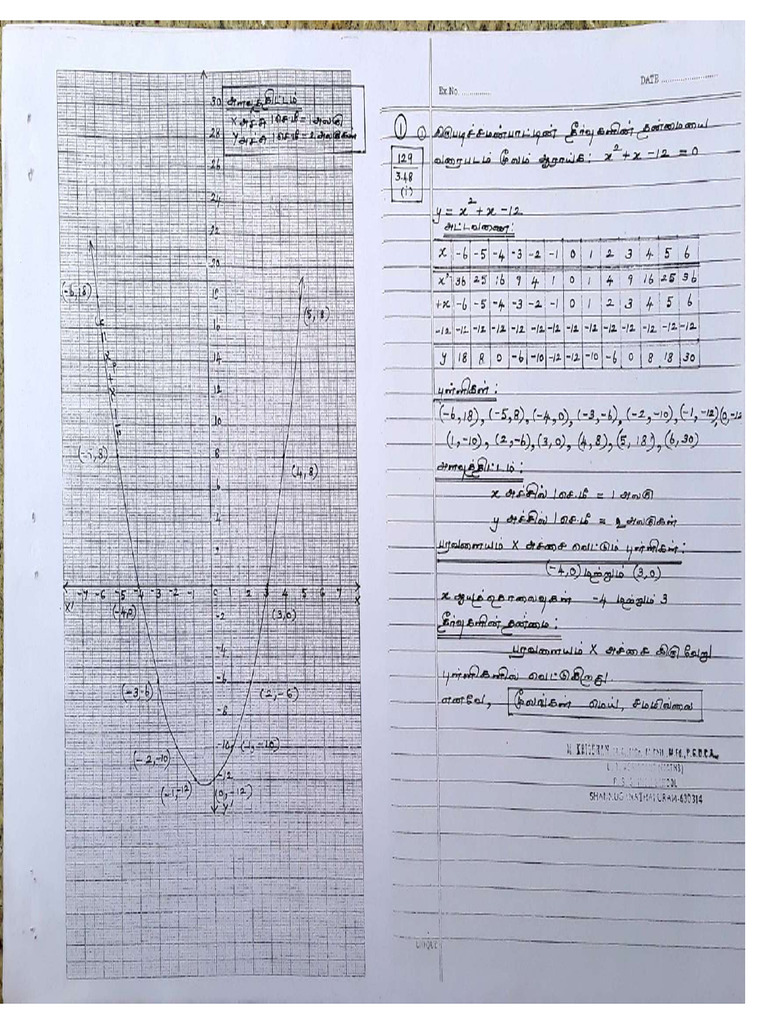 அளவுத்திட்டம்
X அச்சு 1செ.மீ = 1 அலகு
Y அச்சு 1செ.மீ = 2 அலகுகள்
30
28
26
24
22
20
18
16
14
12
10
8
6
4
2
(-6,18)
(5,18)
y = x² + x - 12
(-5,8)
(4,8)
X' -7 -6 -5 -4 -3 -2 -1 0 1 2 3 4 5 6 7 X
(-4,0)
(3,0)
-2
-4
-6
-8
-10
-12
(-3-6)
(2,-6)
(-2,-10)
(1,-10)
(-1,-12)
(0,-12)
Y'
DATE
Ex.No.
① ① இருபடிச்சமன்பாட்டின் தீர்வுகளின் தன்மையை
129
3.48
(i)
வரைபடம் மூலம் ஆராய்க: x² + x - 12 = 0
y = x² + x - 12
அட்டவணை:
x -6 -5 -4 -3 -2 -1 0 1 2 3 4 5 6
x² 36 25 16 9 4 1 0 1 4 9 16 25 36
+x -6 -5 -4 -3 -2 -1 0 1 2 3 4 5 6
-12 -12 -12 -12 -12 -12 -12 -12 -12 -12 -12 -12 -12 -12
y 18 8 0 -6 -10 -12 -12 -10 -6 0 8 18 30
புள்ளிகள்:
(-6,18), (-5,8), (-4,0), (-3,-6), (-2,-10), (-1,-12), (0,-12
(1,-10), (2,-6), (3,0), (4,8), (5,18), (6,30)
அளவுத்திட்டம்:
x அச்சில் 1செ.மீ = 1 அலகு
y அச்சில் 1செ.மீ = 2 அலகுகள்
பரவளையம் X அச்சை வெட்டும் புள்ளிகள்:
(-4,0) மற்றும் (3,0)
x ஆயத்தொலைவுகள் -4 மற்றும் 3
தீர்வுகளின் தன்மை:
பரவளையம் X அச்சை இரு வேறு
புள்ளிகளில் வெட்டுகிறது.
எனவே, மூலங்கள் மெய், சமமில்லை
SHANMUGANATHAPURAM-630314
UNIQUE